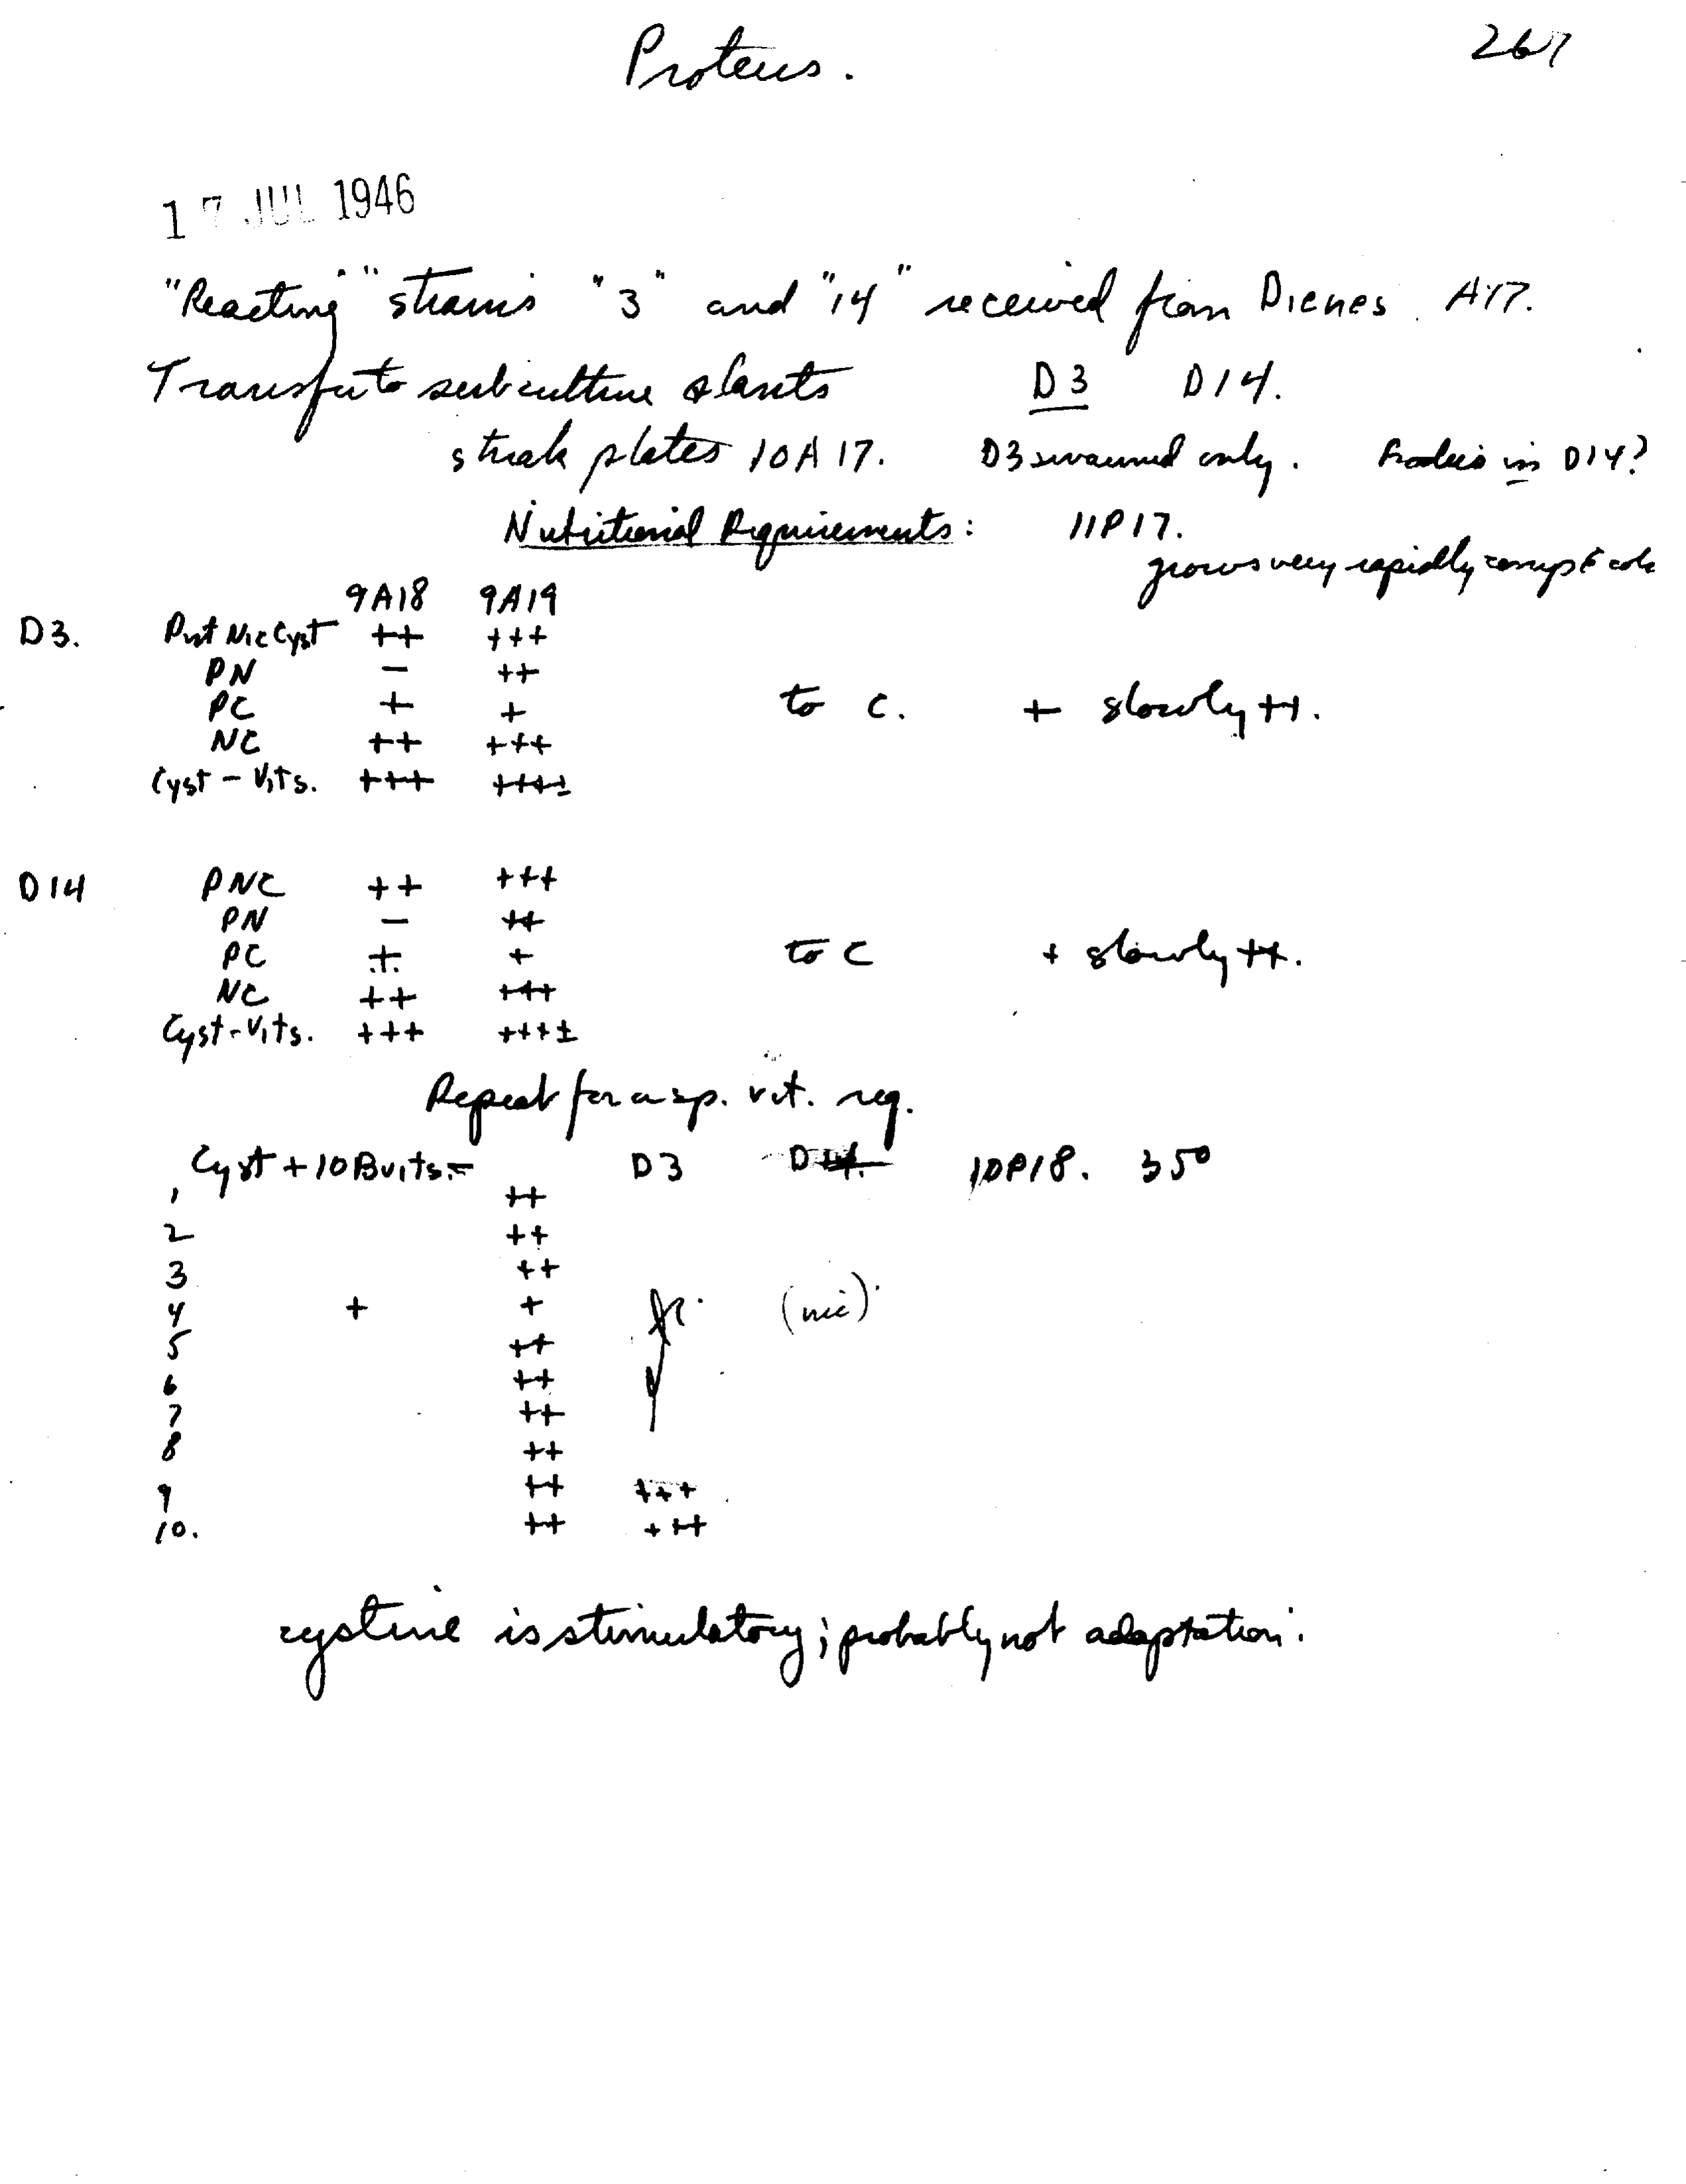 Proteus. 267
17 JUL 1946
"Reacting" strains "3" and "14" received from Dienes. A17.
Transfer to subculture slants D3 D14.
streak plates 10A17. D3 swarmed only. in D14?
Nutritional Requirements: 11P17.
grows very rapidly
9A18 9A19
D3. Pant Nic Cyst ++ +++
PN − ++
PC + + to C. + slowly ++.
NC ++ +++
Cyst − Vits. +++ ++++±
D14 PNC ++ +++
PN − ++
PC + + to C + slowly ++.
NC ++ +++
Cyst-Vits. +++ +++±
Repeat for a sp. vit. req.
Cyst + 10 Bvits.= D3 D14. 10P18. 35°
1 ++
2 ++
3 ++
4 + + (nic).
5 ++
6 ++
7 ++
8 ++
9 ++ +++
10. ++ +++
cystine is stimulatory; probably not adaptation.